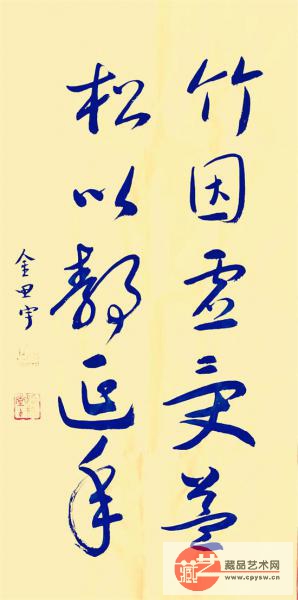 竹因虚受益
松以静延年
藏艺
藏品艺术网
www.cpysw.cn